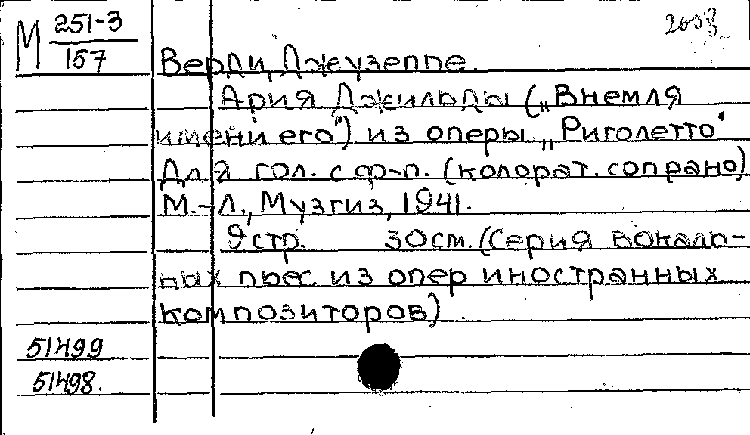 М 251-3
157
2008
Верди, Джузеппе.
Ария Джильды („Внемля
имени его") из оперы „Риголетто"
Для гол. с ф-п. (колорат. сопрано)
М.-Л., Музгиз, 1941.
9 стр. 30 см. (Серия вокаль-
ных пьес из опер иностранных
композиторов)
51499
51498.